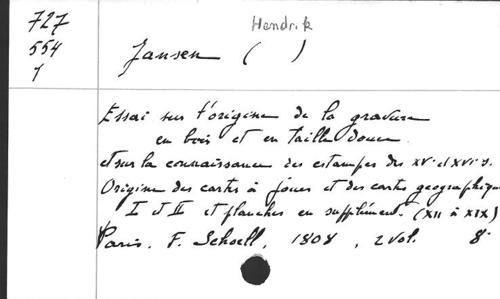 727
554
1
Hendrik
Jansen ( )
Essai sur l'origine de la gravure
en bois et en taille douce
et sur la connaissance des estampes des XVe et XVIe s.
Origine des cartes à jouer et des cartes géographiques
I et II et planches en supplément. (XII à XIX)
Paris. F. Schoell, 1808, 2 vol. 8°